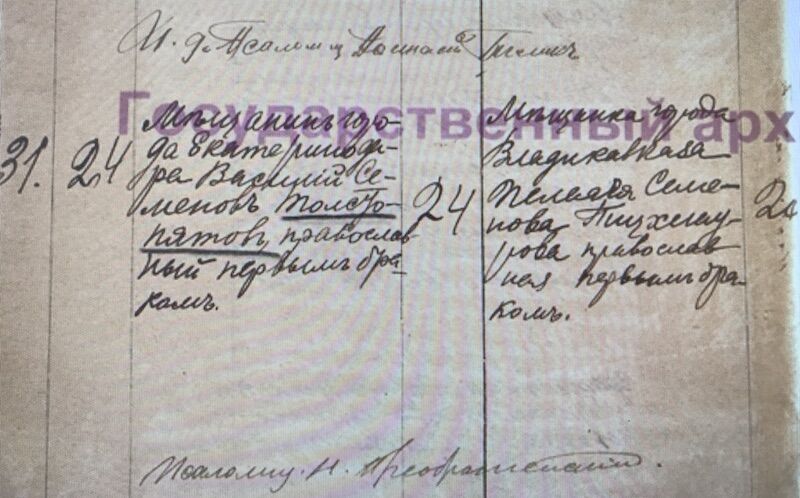 И. д. Псаломщ
Государственный арх
31.
24
Мѣщанинъ горо-
да Екатеринода-
ра Василій Се-
меновъ Толсто-
пятовъ, православ
ный первымъ бра-
комъ.
24
Мѣщанка города
Владикавказа
Пелагея Семе-
нова
рова православ
ная первымъ бра-
комъ.
24
Псаломщ. Н. Преображенскій.